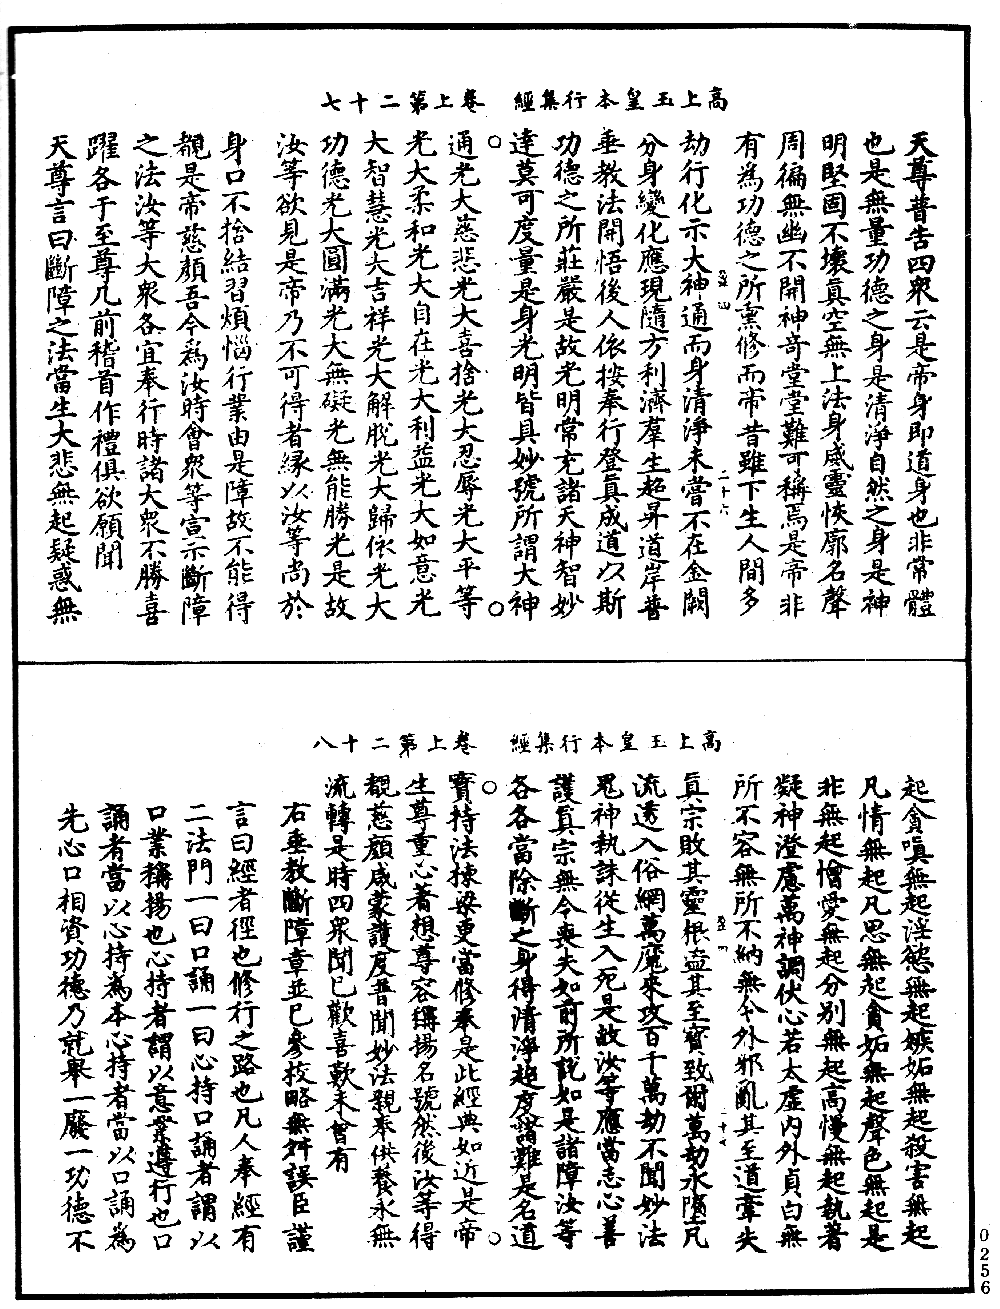 高上玉皇本行集經　卷上第二十七
天尊普告四衆云是帝身即道身也非常體
也是無量功德之身是清淨自然之身是神
明堅固不壞真空無上法身威靈恢廓名聲
周徧無幽不開神奇堂堂難可稱焉是帝非
有為功德之所熏修而帝昔雖下生人間多
劫行化示大神通而身清淨未嘗不在金闕
分身變化應現隨方利濟羣生超昇道岸普
垂教法開悟後人依按奉行登真成道以斯
功德之所莊嚴是故光明常充諸天神智妙
達莫可度量是身光明皆具妙號所謂大神
通光大慈悲光大喜捨光大忍辱光大平等
光大柔和光大自在光大利益光大如意光
大智慧光大吉祥光大解脫光大歸依光大
功德光大圓滿光大無礙光無能勝光是故
汝等欲見是帝乃不可得者緣以汝等尚於
身口不捨結習煩惱行業由是障故不能得
覩是帝慈顏吾今為汝時會衆等宣示斷障
之法汝等大衆各宜奉行時諸大衆不勝喜
躍各于至尊几前稽首作禮俱欲願聞
天尊言曰斷障之法當生大悲無起疑惑無
二十六
高上玉皇本行集經　卷上第二十八
起貪嗔無起淫慾無起嫉妬無起殺害無起
凡情無起凡思無起貪妬無起聲色無起是
非無起憎愛無起分別無起高慢無起執著
凝神澄慮萬神調伏心若太虛內外貞白無
所不容無所不納無令外邪亂其至道牽失
真宗敗其靈根盗其至寶致爾萬劫永墮凡
流透入俗網萬魔來攻百千萬劫不聞妙法
鬼神執誅從生入死是故汝等應當志心善
護真宗無令喪失如前所說如是諸障汝等
各各當除斷之身得清淨超度諸難是名道
寶持法楝梁更當修奉是此經典如近是帝
生尊重心著想尊容稱揚名號然後汝等得
覩慈顏咸蒙護度普聞妙法親奉供養永無
流轉是時四衆聞已歡喜歎未曾有
右垂教斷障章並已參校略無舛誤臣謹
言曰經者徑也修行之路也凡人奉經有
二法門一曰口誦一曰心持口誦者謂以
口業稱揚也心持者謂以意業遵行也口
誦者當以心持為本心持者當以口誦為
先心口相資功德乃就舉一廢一功德不
二十七
0256